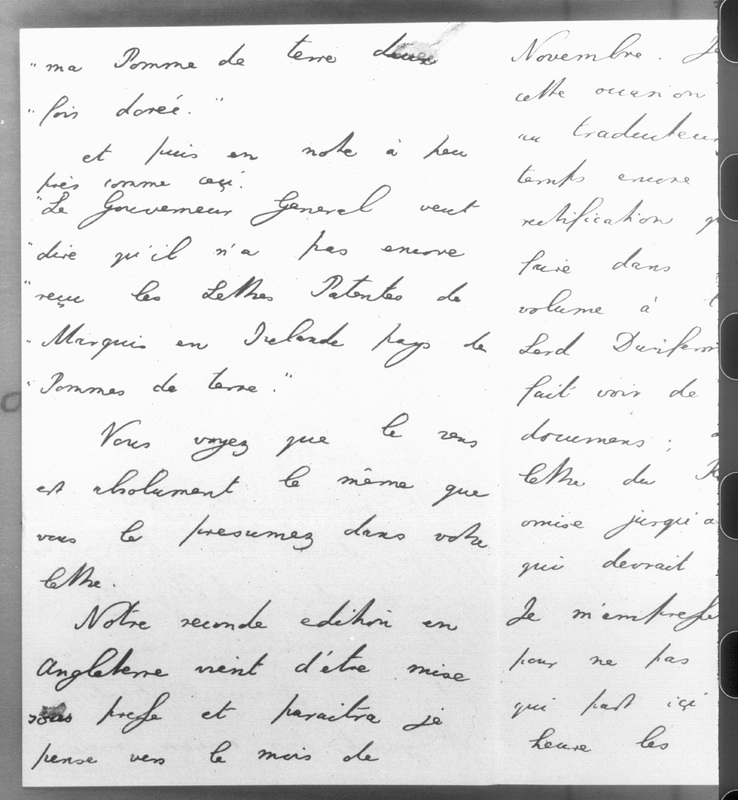 "ma Pomme de terre deux
"fois dorée."
et puis en note à peu
près comme ceçi.
"Le Gouverneur General veut
"dire qu'il n'a pas encore
"reçu les Lettres Patentes de
"Marquis en Irelande pays de
"Pommes de terre."
Vous voyez que le sens
est absolument le même que
vous le presumez dans votre
lettre.
Notre seconde edition en
Angleterre vient d'être mise
sous presse et paraitra je
pense vers le mois de
Novembre. Je
cette occasion
au traducteur
temps encore
rectification
faire dans
volume à
Lord
fait voir de
documens;
lettre du
omise jusqu'a
qui devrait
Je m'empresse
pour ne pas
qui part içi
heure les